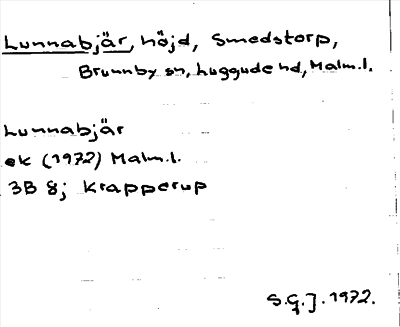 Lunnabjär, höjd, Smedstorp,
Brunnby sn, Luggude hd, Malm.l.
Lunnabjär
ek (1972) Malm.l.
3B 8; Krapperup
S.G.J. 1972.